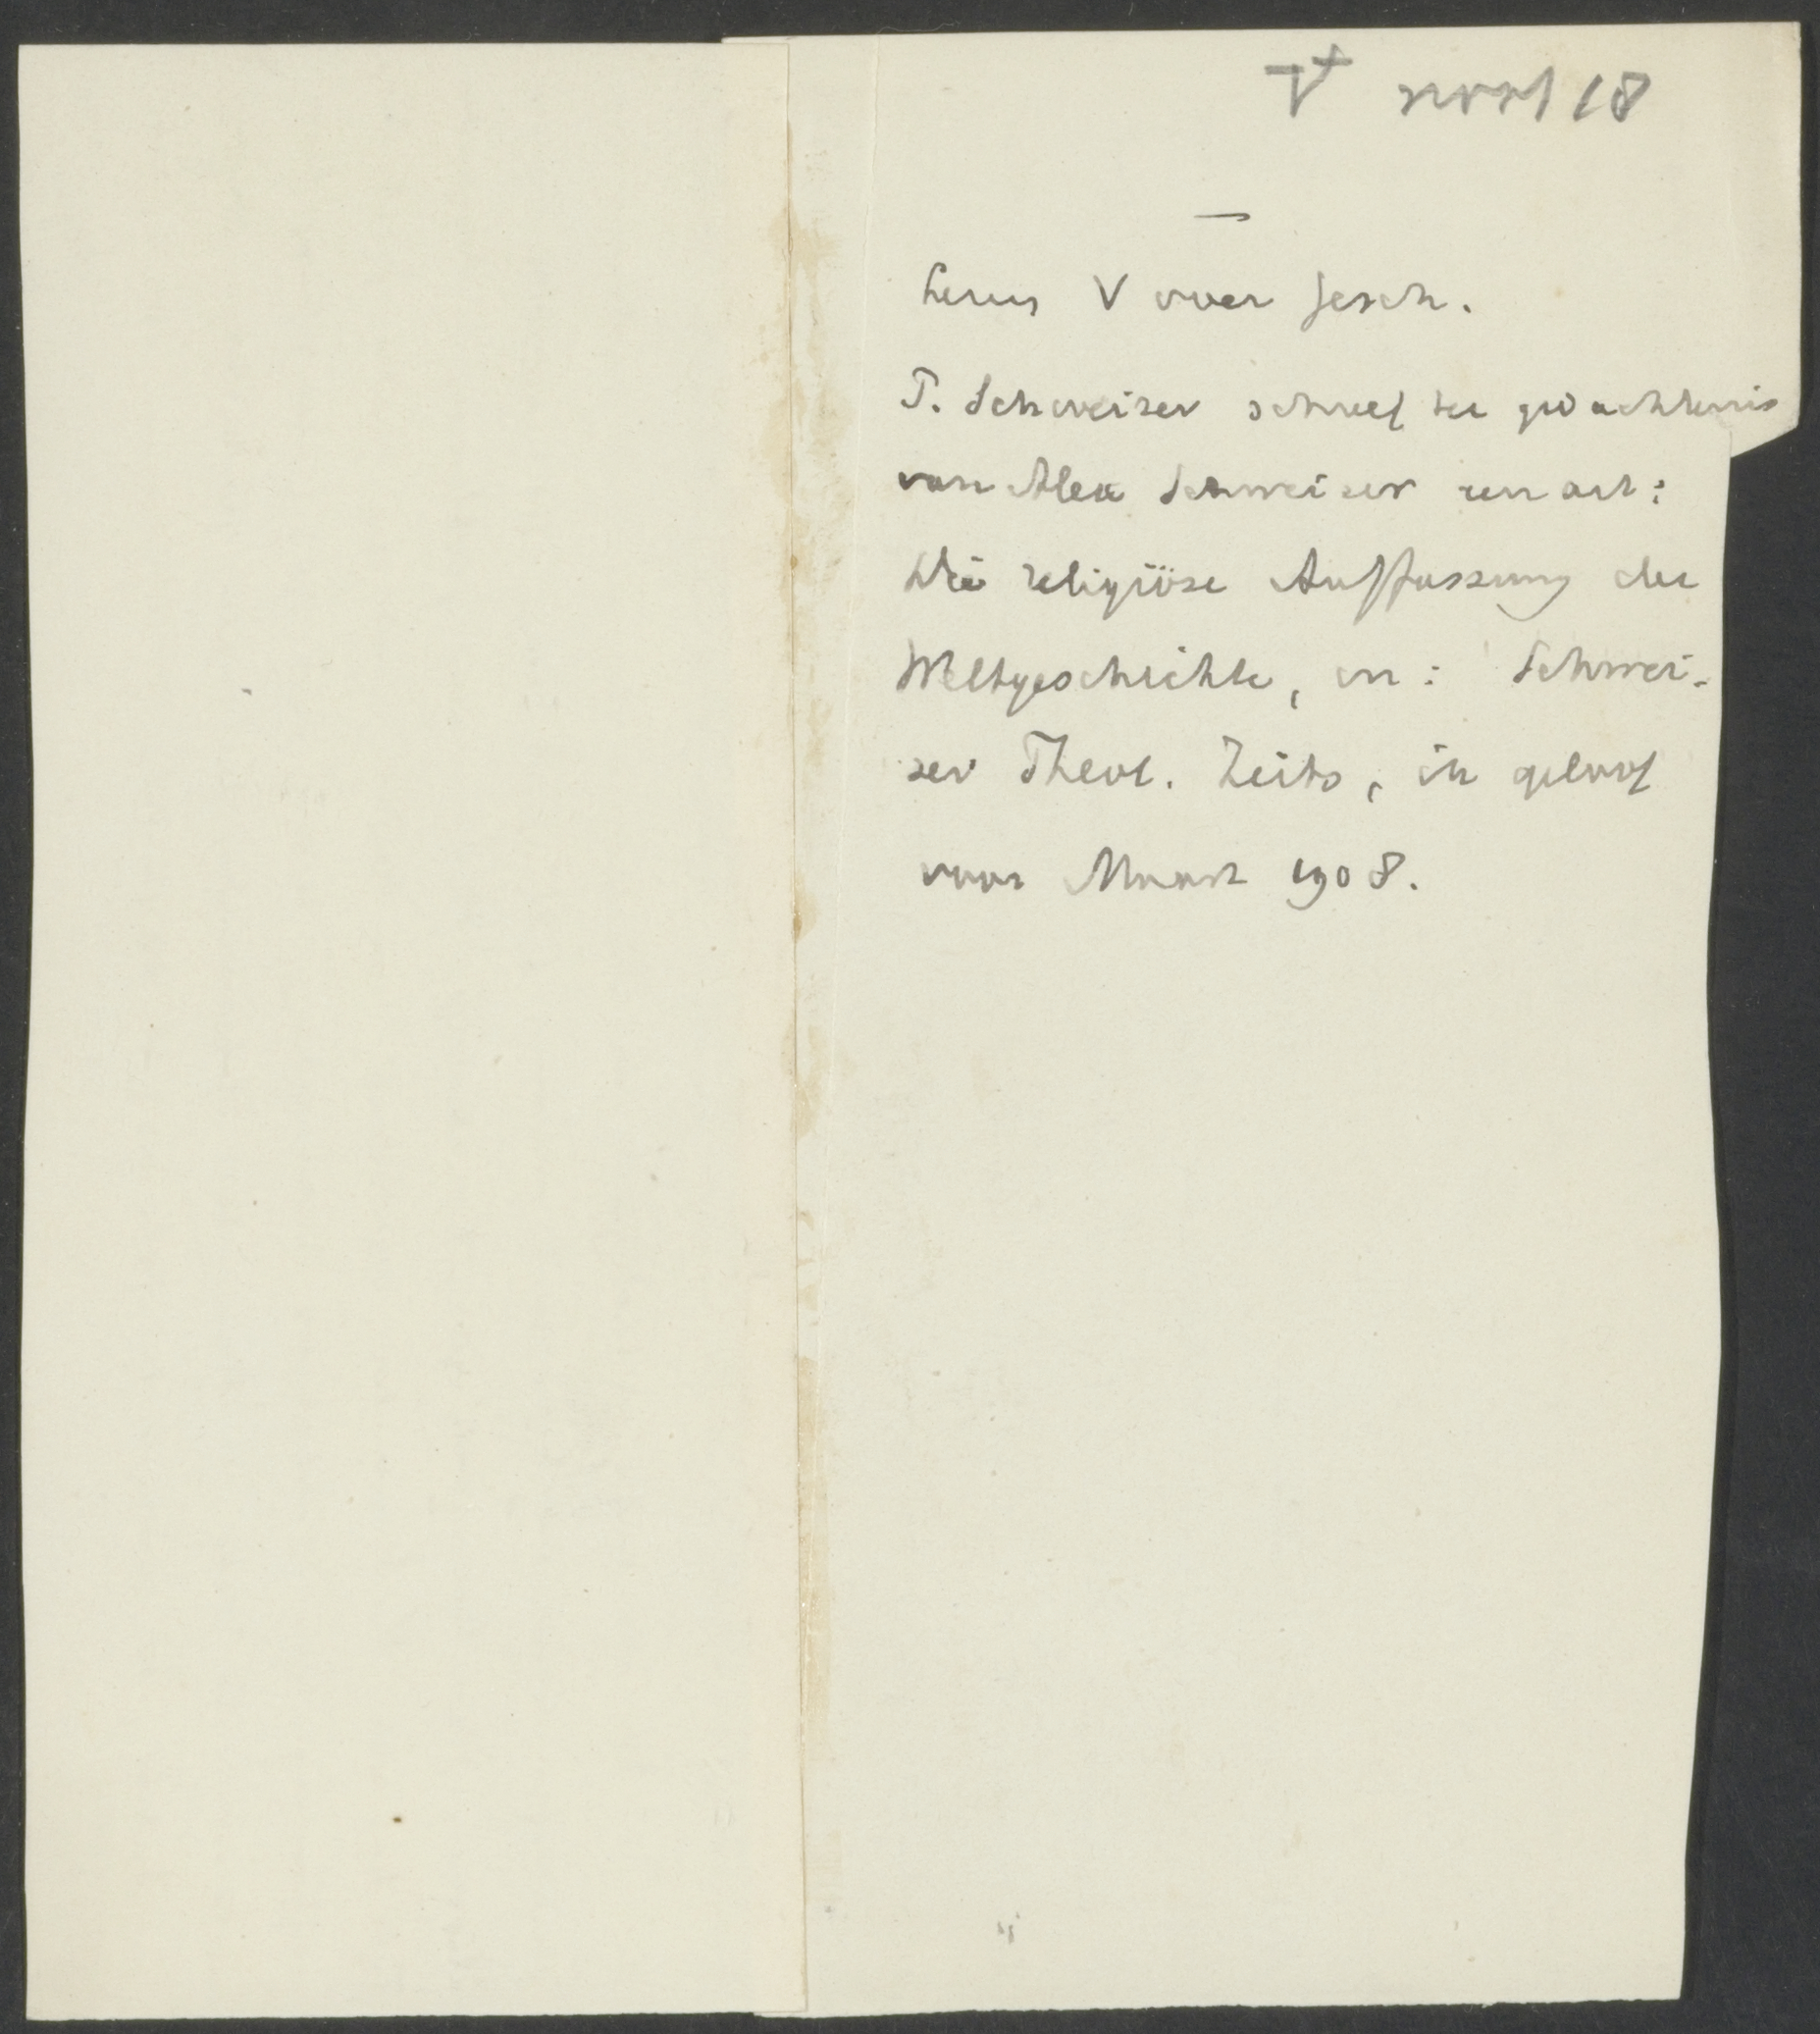 V+ noot 18
—
V over Gesch.
P. Schweizer schreef ter gedachtenis
van Alex Schweizer een art:
Die religiöse Auffassung der
Weltgeschichte, in: Schwei-
zer Theol. Zeits, ik geloof
voor Maart 1908.